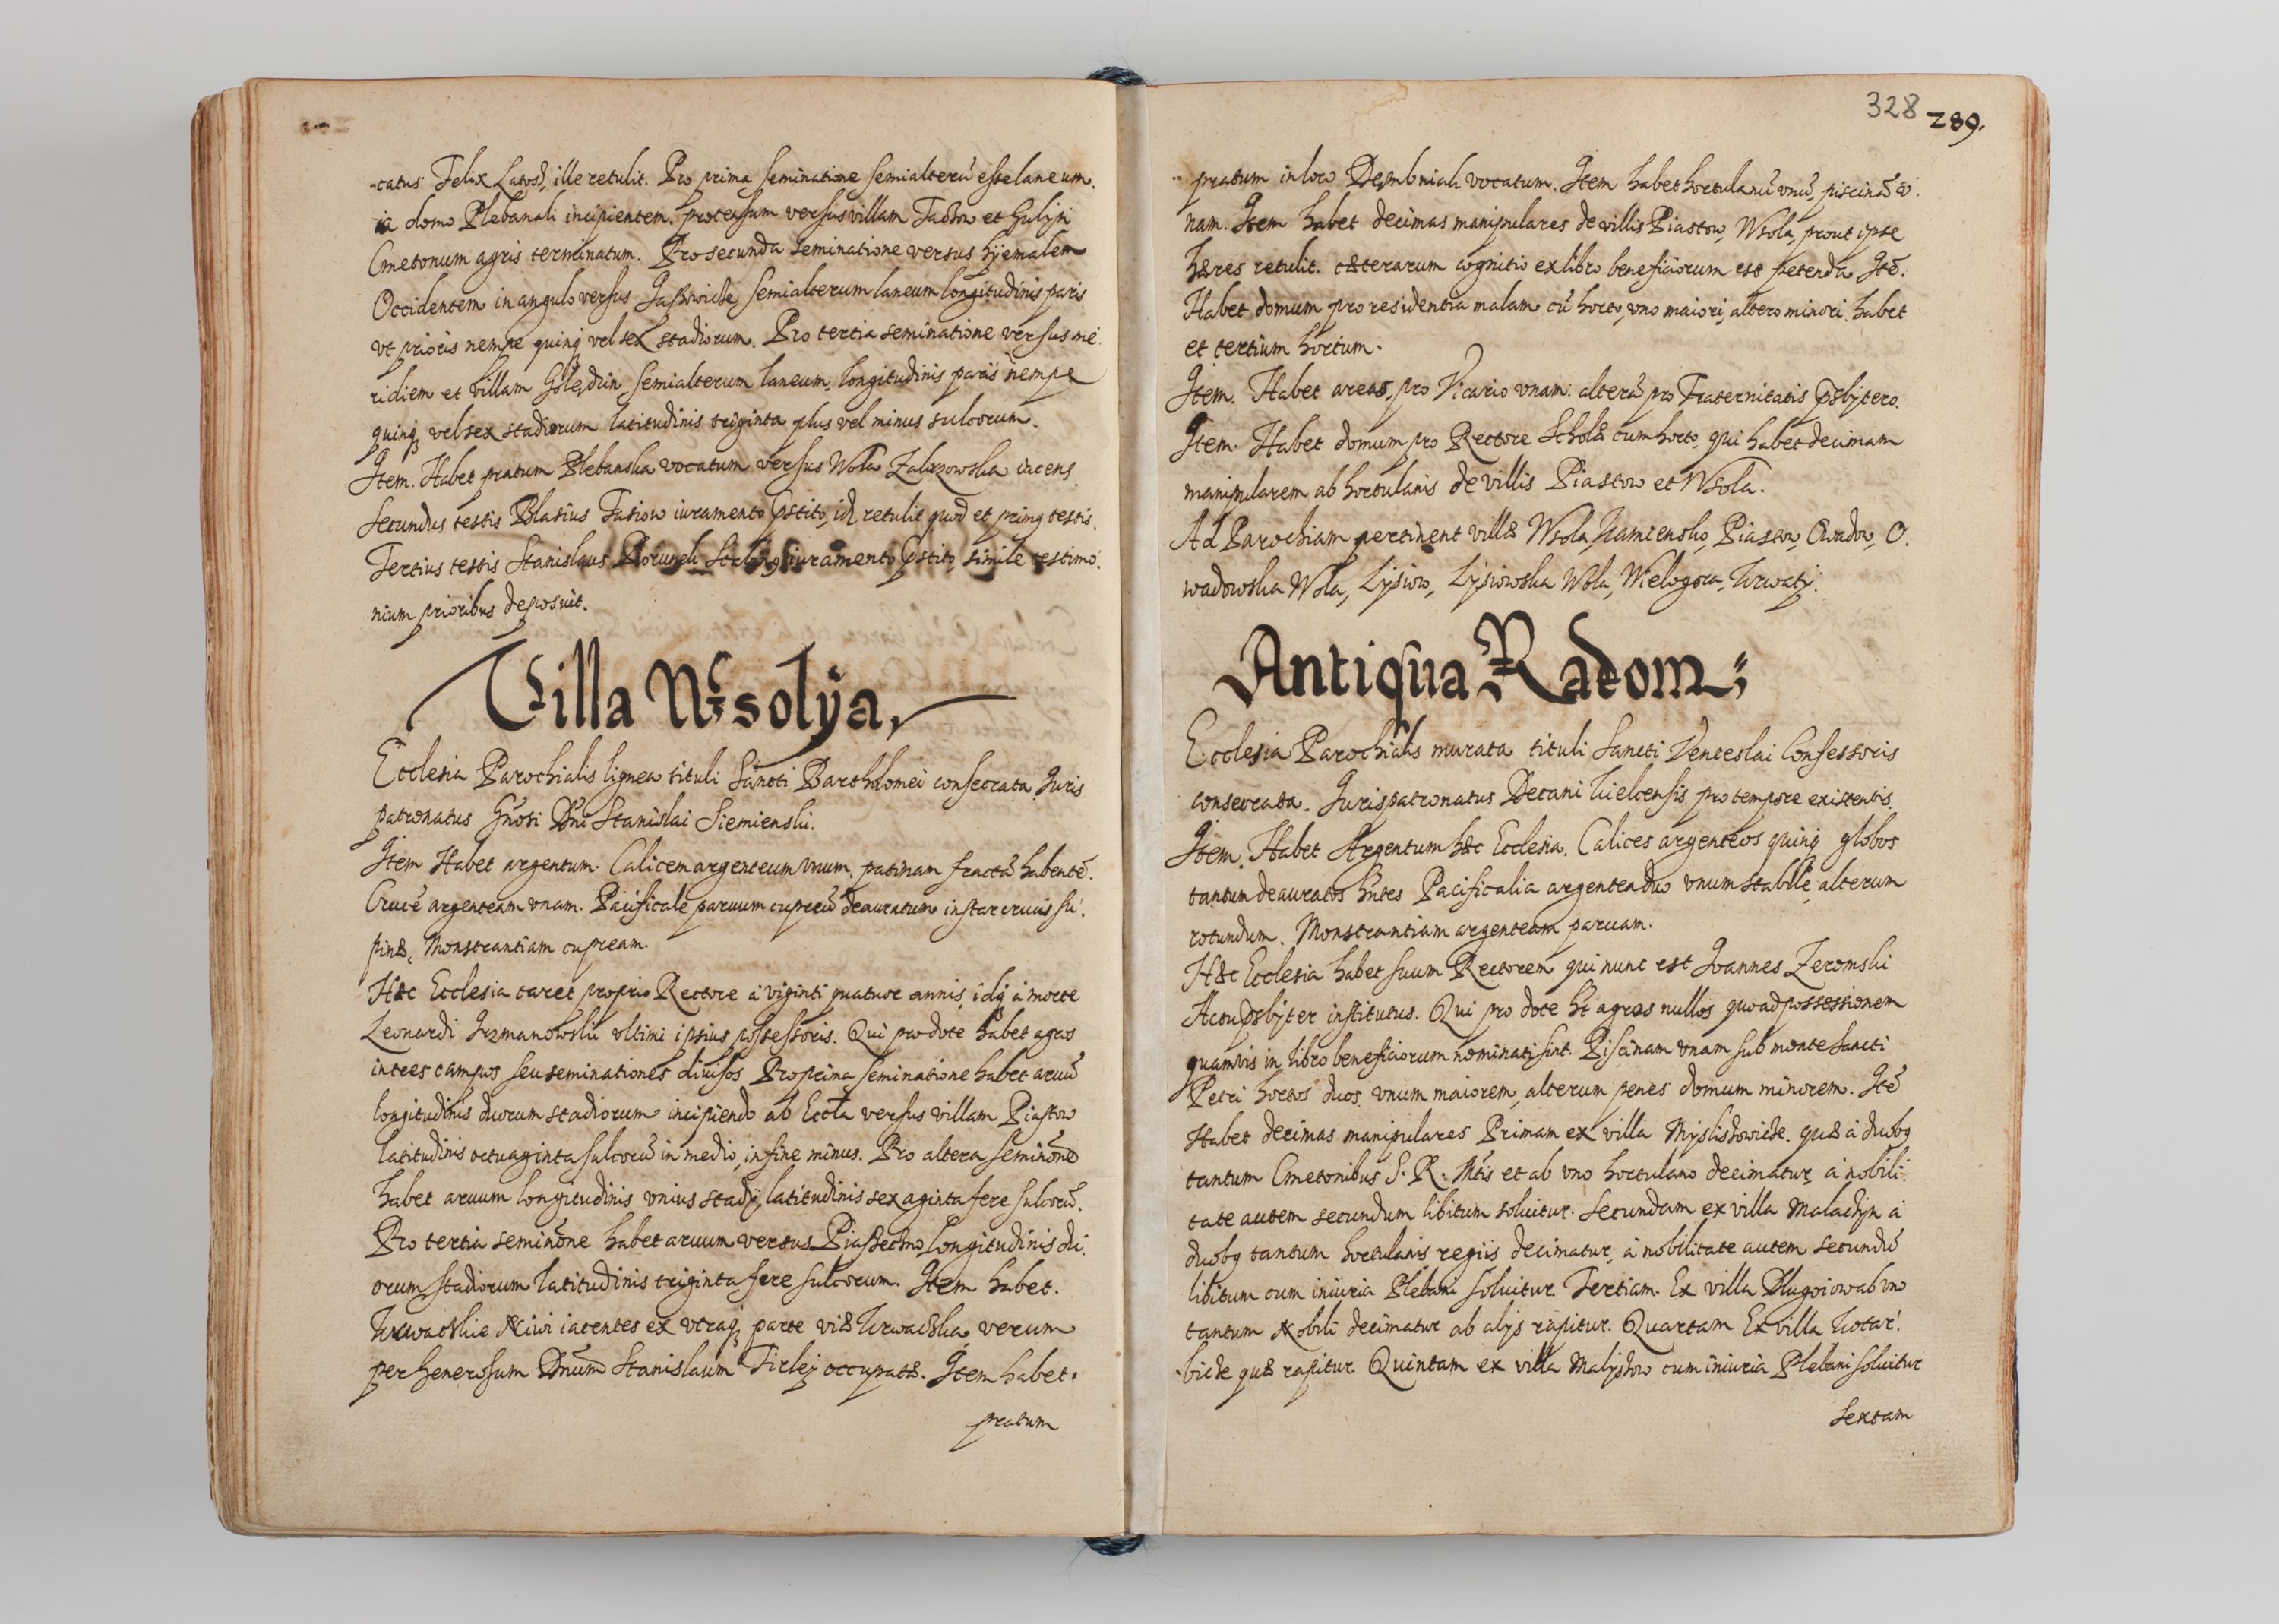 -catus Felix Latos, ille retulit. Pro prima seminatione semialterũ esse laneum.
a domo Plebanali incipientem protensum versus villam Taczow et Gulijn
Cmetonum agris terminatum. Pro secunda seminatione versus hyemalem
Occidentem in angulo versus semialterum laneum longitudinis paris
vt prioris nempe quinq vel sex stadiorum. Pro tertia seminatione versus me
ridiem et villam Golędzin semialterum laneum longitudinis paris nempe
quinq vel sex stadiorum latitudinis triginta plus vel minus sulcorum.
Item. Habet pratum Plebanska vocatum versus Wola Zakrzowska iacens
Secundus testis Blasius iuramento pstito, id retulit quod et primq testis.
Tertius testis Stanislaus iuramento pstito, simile testimo
nium prioribus deposuit.
Villa Wsolya,
Ecclesia Parochialis lignea tituli Sancti Bartholomei consecrata Juris
patronatus Gnosi Dni Stanislai Siemienski.
Item Habet argentum. Calicem argenteum vnum, patinam fractã habentẽ.
Crucẽ argenteam vnam. Pacificale paruum cupreũ deauratum instar crucis su
pinæ, Monstrantiam cupream.
Hæc Ecclesia caret proprio Rectore à viginti quatuor annis, idq à morte
Leonardi vltimi ipsius possessoris. Qui pro dote habet agros
in tres campos seu seminationes diuisos Pro prima seminatione habet aruũ
longitudinis duorum stadiorum incipiendo ab Eccla versus villam Piastow
latitudinis octuaginta sulcorũ in medio, in fine minus. Pro altera seminõne
habet aruum longitudinis vnius stadij, latitudinis sexaginta fere sulcorũ.
Pro tertia seminõne habet aruum versus longitudinis du
orum stadiorum latitudinis triginta fere sulcorum. Item habet.
Niwi iacentes ex vtraq parte viæ verum
per Generosum Dnum Stanislaum Firlej occupatæ. Item habet.
pratum
328
289.
pratum in loco Dembniak vocatum. Item habet hortulanũ vnũ, piscinã v
nam. Item habet decimas manipulares de villis Piastow, Wsola, prout ipse
hæres retulit. cæterarum cognitio ex libro beneficiorum est petenda Itẽ.
Habet domum pro residentia malam cũ horto, vno maiori, altero minori. habet
et tertium hortum.
Item. Habet areas, pro Vicario vnam: alterã pro Fraternitatis psbytero.
Item. Habet domum pro Rectore Scholæ cum horto, qui habet decimam
manipularem ab hortulanis de villis Piastow et Wsola.
Ad Parochiam pertinent villæ Wsola, Kamiensko, Piastow, Owadow, O.
wadowska Wola, Lysiow, Lysiowska Wola, Wielogora, Kurwaty.
Antiqua Radom
Ecclesia Parochialis murata tituli Sancti Venceslai Confessoris
consecrata. Juris patronatus Decani Kielcensis pro tempore existentis
Item. Habet Argentum hæc Ecclesia. Calices argenteos quinq globos
tantum deauratos hntes Pacificalia argentea duo vnum stabile, alterum
rotundum. Monstrantiam argenteam paruam.
Hæc Ecclesia habet suum Rectorem qui nunc est Joannes Zeromski
Actu psbyter institutus. Qui pro dote ht agros nullos quo ad possessionem
quamvis in libro beneficiorum nominati sint. Piscinam vnam sub monte Sancti
Petri hortos duos vnum maiorem, alterum penes domum minorem. Itẽ
Habet decimas manipulares Primam ex villa Myslishowicze. quæ à duobq
tantum Cmetonibus S. R. Mtis et ab vno hortulano decimatur, à nobili
tate autem secundum libitum soluitur. Secundam ex villa Malaczyn à
duobq tantum hortulanis regiis decimatur, à nobilitate autem secundũ
libitum cum iniuria Plebani soluitur Tertiam. Ex villa Dlugoiow ab vno
tantum Nobili decimatur ab alijs rapitur. Quartam Ex villa Kotar
bicze quæ rapitur Quintam ex villa Malyshow cum iniuria Plebani soluitur
Sextam